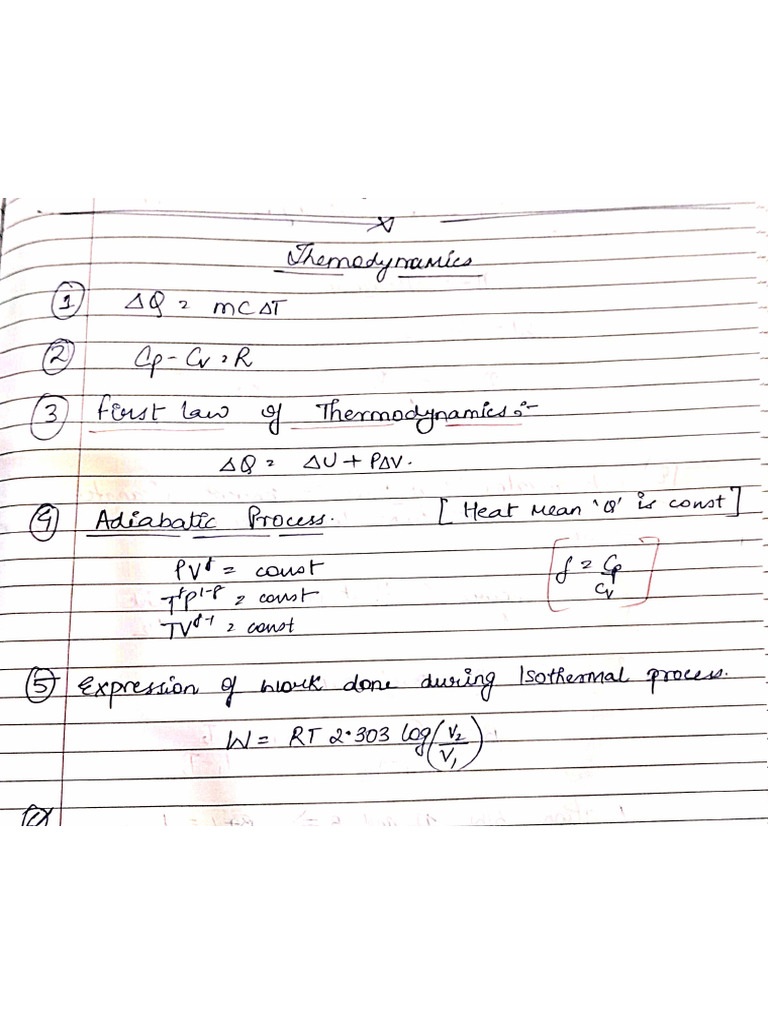 Themodynamics
① ΔQ = mCΔT
② Cp - Cv = R
③ First law of Thermodynamics :-
ΔQ = ΔU + PΔV.
④ Adiabatic Process. [Heat mean 'Q' is const]
PV^γ = const
T^γP^1-γ = const
TV^γ-1 = const
γ = Cp/Cv
⑤ Expression of work done during Isothermal process.
W = RT 2.303 log(V₂/V₁)